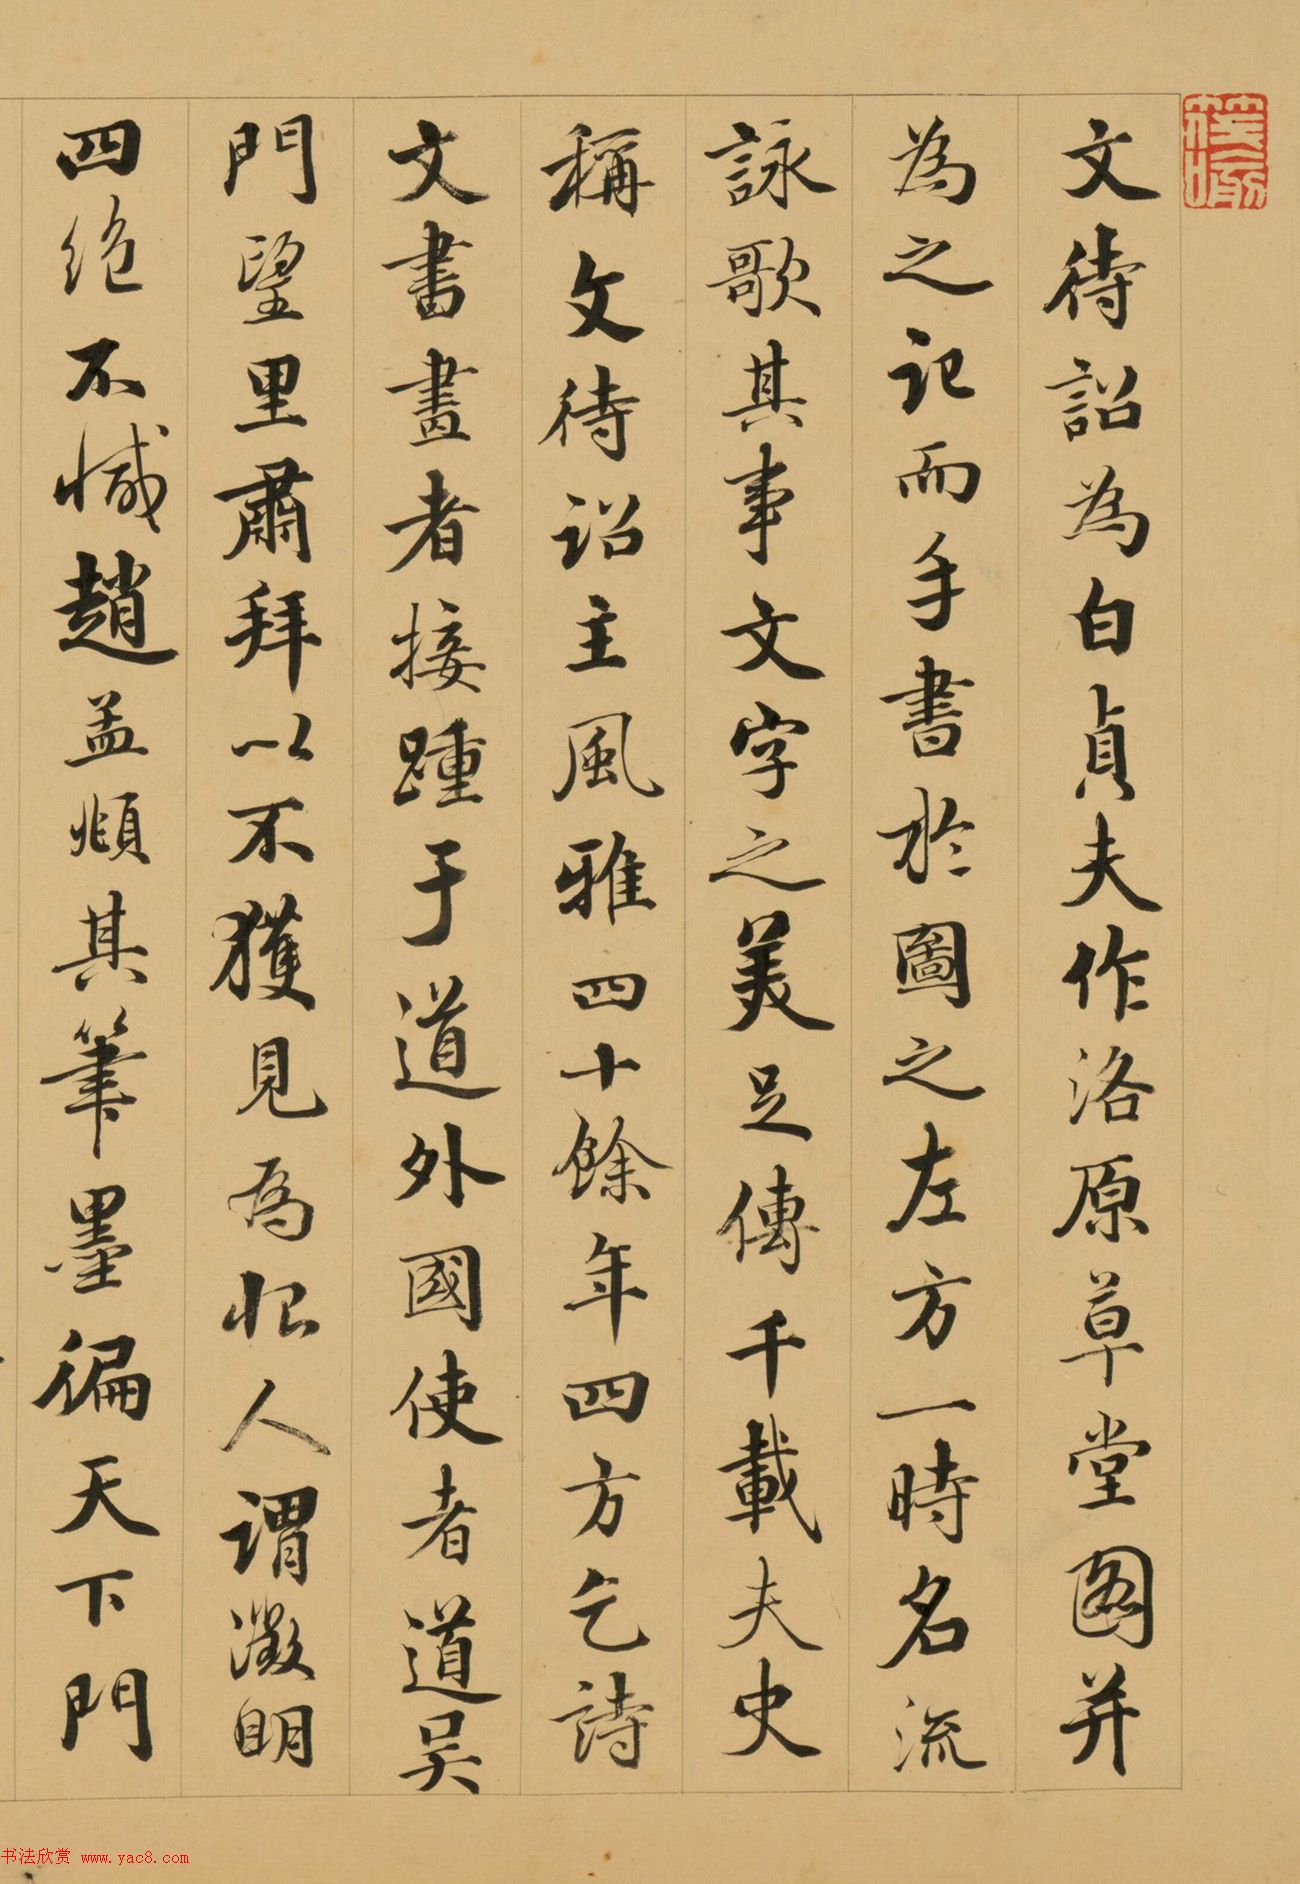 文待詔為白貞夫作洛原草堂圖并
為之記而手書於圖之左方一時名流
詠歌其事文字之美足傳千載夫史
稱文待詔主風雅四十餘年四方乞詩
文書畫者接踵于道外國使者道吳
門望里肅拜以不獲見為恨人謂徵明
四绝不憾趙孟頫其筆墨徧天下門
书法欣赏 www.yac8.com